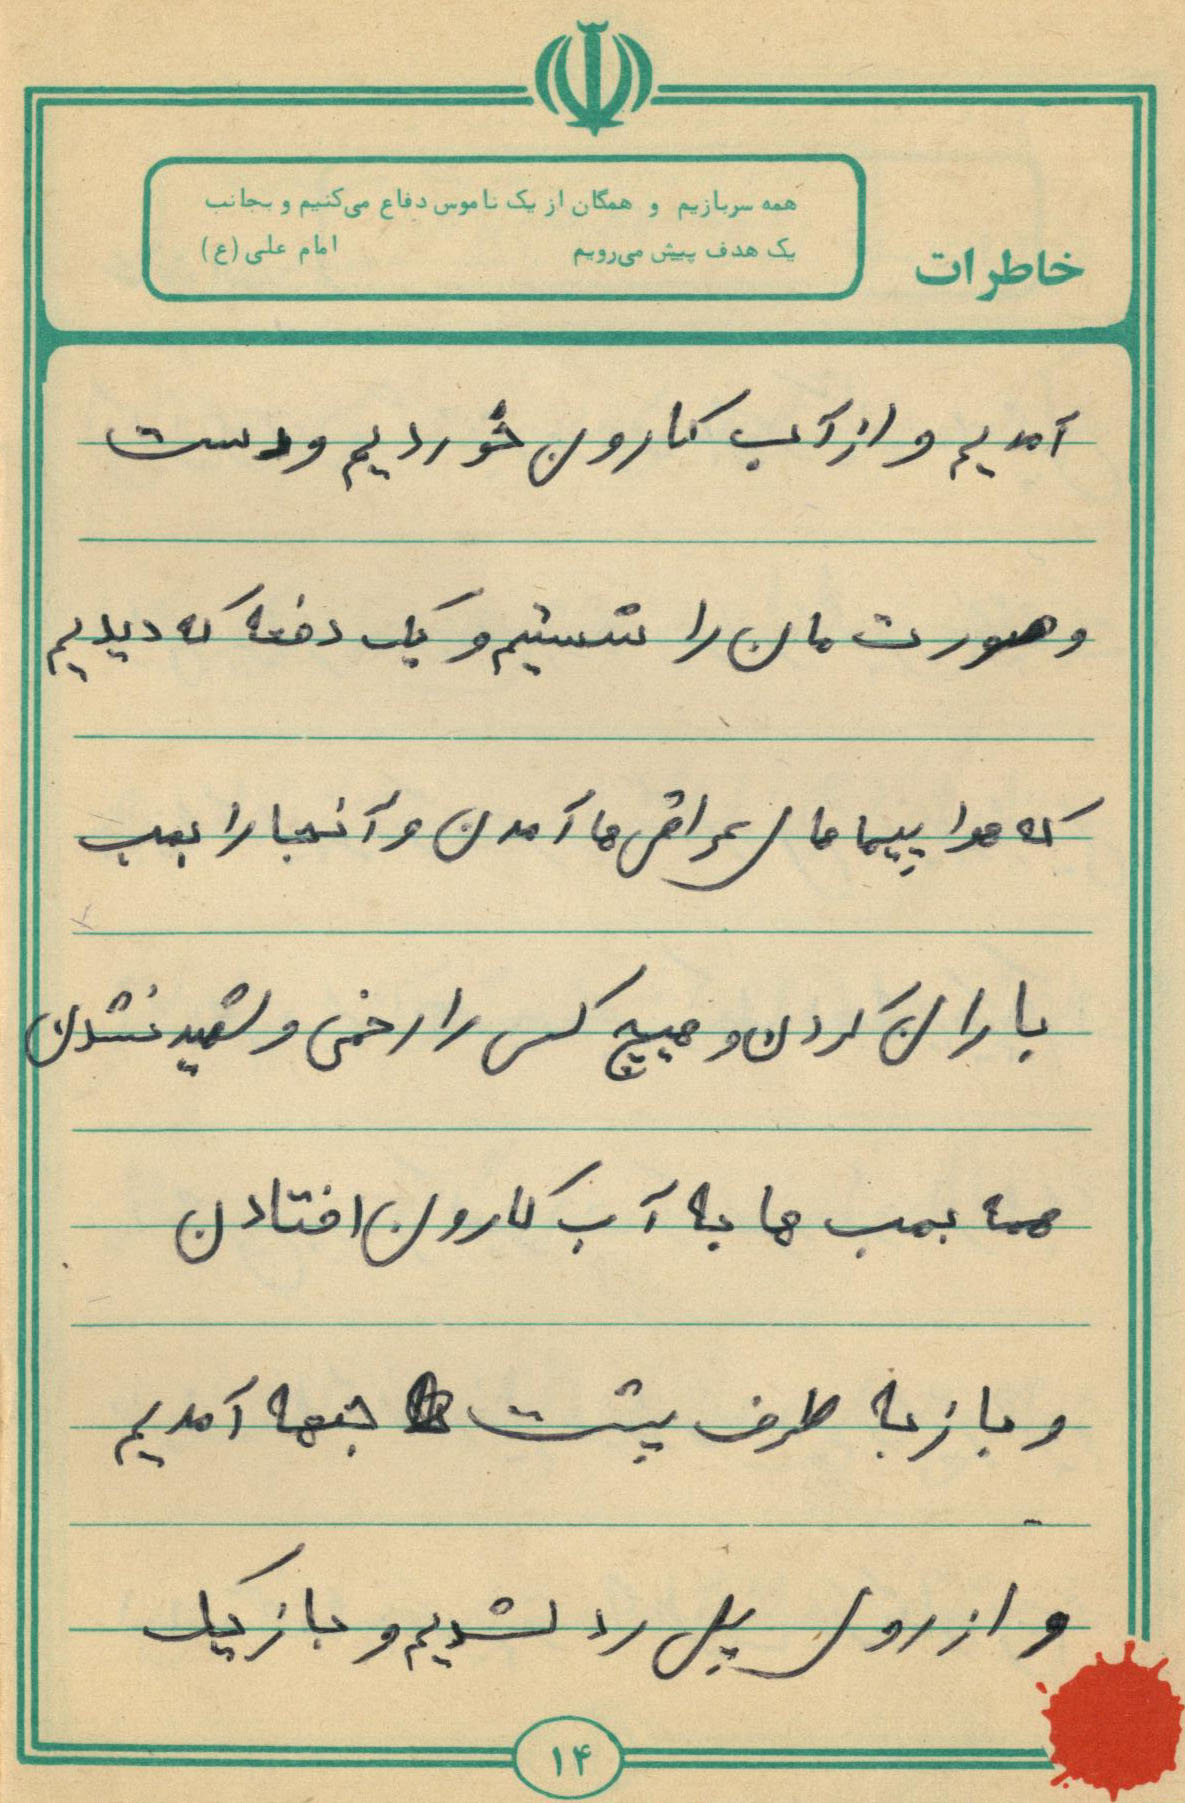 همه سربازیم و همگان از یک ناموس دفاع می‌کنیم و بجانب
یک هدف پیش می‌رویم امام علی (ع)
خاطرات
آمدیم و از آب کارون خوردیم و دست
و صورت مان را شستیم و یک دفعه که دیدیم
که هوا پیما های عراقی ها آمدن و آنجا را بمب
باران کردن و هیچ کس را زخمی و شهید نشدن
همه بمب ها به آب کارون افتادن
و باز به طرف پشت جبهه آمدیم
و از روی پل رد شدیم و باز یک
۱۴